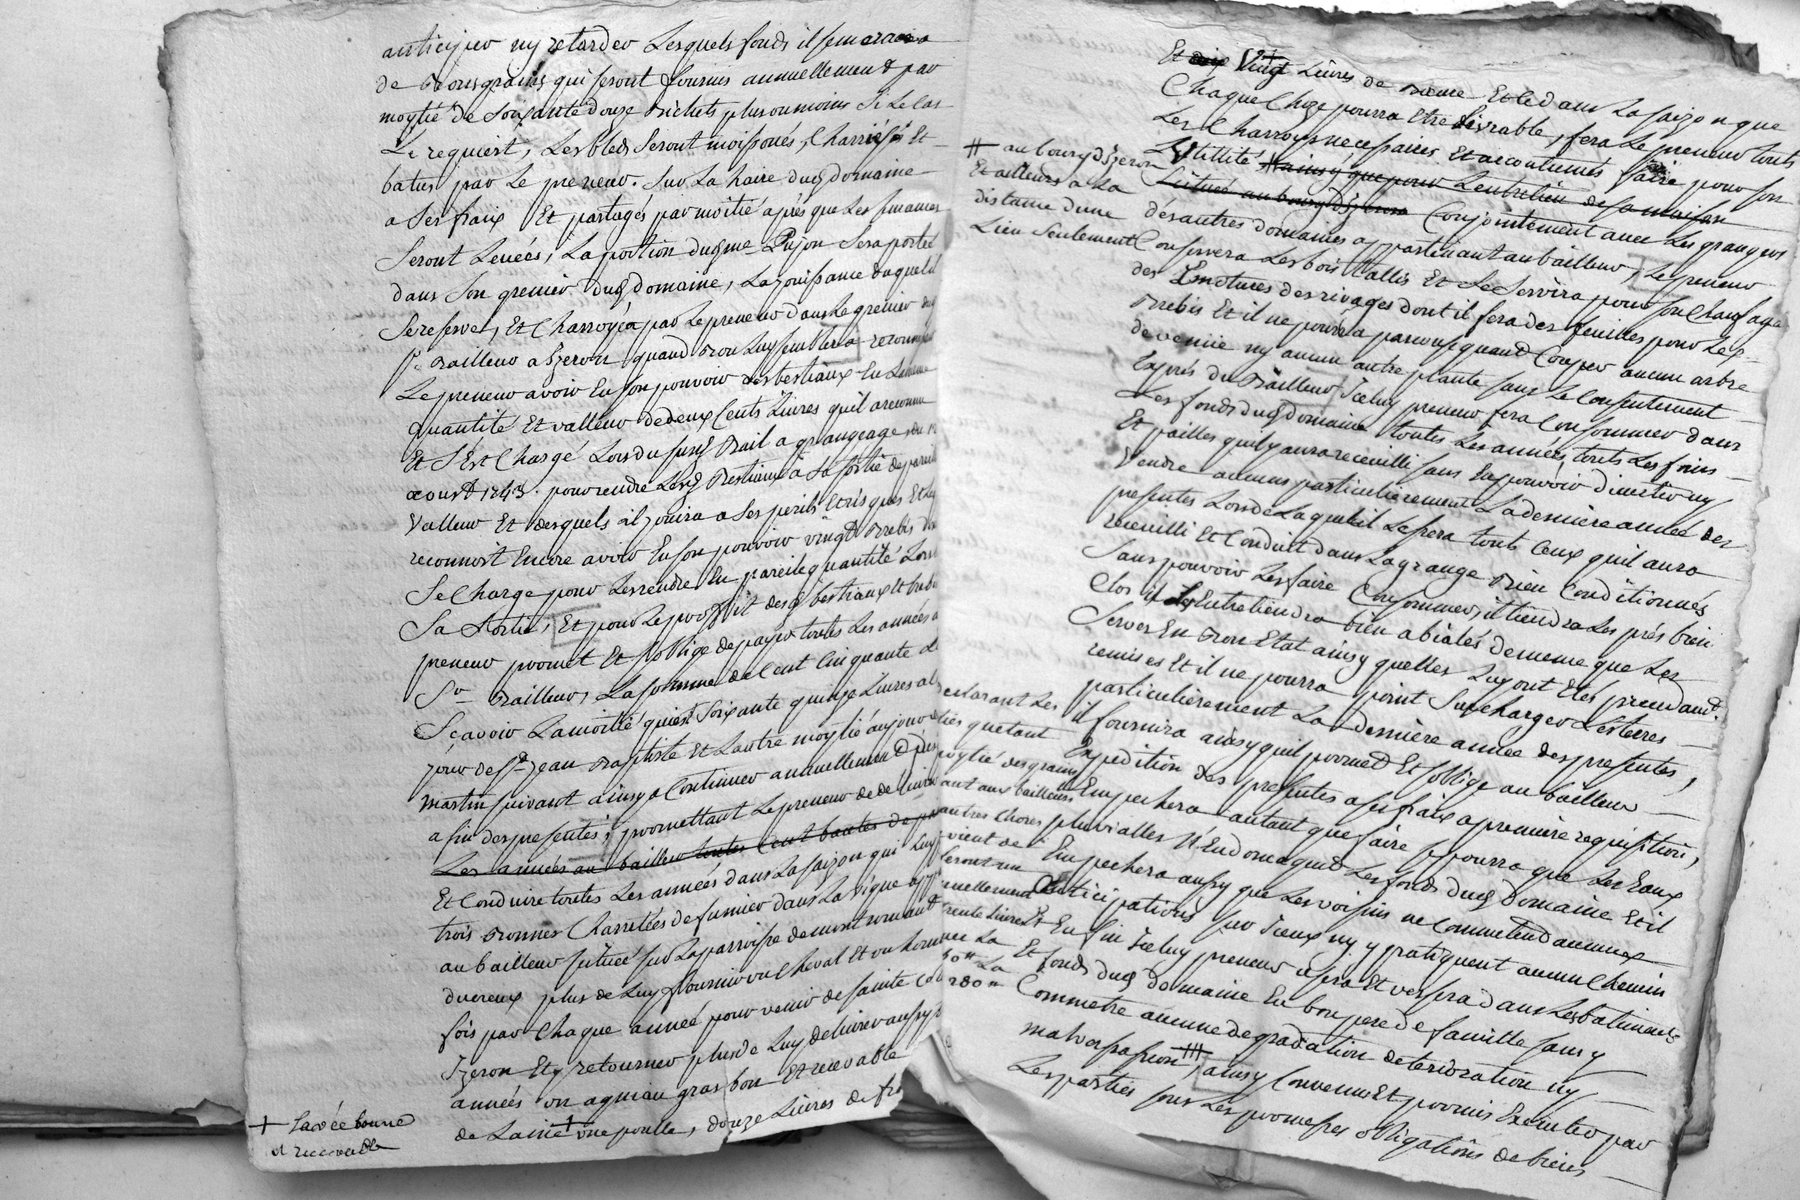 anticiper ny retarder Lesquels fonds il semera
de bons grains qui seront fournis annuellement par
moytié de soixante douze Bichets plus ou moins si le cas
Le requiert, Les bleds seront moissonés, Charriés Et
batus par Le preneur. sur La haire dud domaine
a ses fraix Et partagés par moitié après que Les semances
seront Levées, La portion dud me Pujon sera portée
dans son grenier dud domaine, La jouissance duquel il
se reserve, Et Charroyés par Le preneur dans Le grenier
Sr Bailleur a Yzeron quand bon Luy semblera
Le preneur avoir En son pouvoir des bestiaux En
quantité Et valleur de deux Cents Livres qu'il a reconnu
Et s'Est Chargé Lors du susd Bail a grangeage du
aoust 1743. pour rendre Lesd Bestiaux à sa sortie de pareille
valleur Et desquels il jouira a ses perils Et risques Et
reconnoit Encore avoir En son pouvoir vingt Brebis
se Charge pour Les rendre En pareille quantité Lors
sa sortie, Et pour Le proffit desd bestiaux Et
preneur promet Et s'oblige de payer toutes Les années
Sr Bailleur, La somme de Cent Cinquante
Scavoir La moitié qui est soixante quinze Livres
jour de St Jean Baptiste Et L'autre moytié au jour
martin suivant ainsy a Continuer annuellement
a fin des presentes, promettant Le preneur de
Les années au bailleur toutes Cent bautes de
Et Conduire toutes Les années dans La saizon qui Luy
trois bonnes Charretées de fumier dans La vigne
au bailleur scituée sur La parroisse de montromant
du creux plus de Luy fournir un Cheval Et un
fois par Chaque année pour venir de sainte
Yzeron Et y retourner plus de Luy delivrer aussy
années un agniau gras bon Et recevable
de Laine + une poulle, douze Livres de
+ Lavée bonne
et recevable
Et dix vingt Livres de beure Et le dans La saizon que
Chaque Choze pourra Etre Livrable, fera Le preneur touts
Les Charroys necessaires Et accoutumés faire pour son
L'utilité # ainsy que pour L'entretien de sa maison
scituée au bourg d'Yzeron Conjointement avec Les grangers
des autres domaines appartenant au bailleur, Le preneur
Conservera Les bois taillis Et se servira pour son Chauffage
# au bourg d'Yzeron
Et ailleurs a La
distance d'une
Lieu seulement
des Emotures des rivages dont il fera des feuilles pour Les
Brebis Et il ne pourra par consequant Couper aucun arbre
de venue ny aucun autre plante sans Le Consentement
Exprés du Bailleur, Iceluy preneur fera Consommer dans
Les fonds dud domaine toutes Les années touts Les foins
Et pailles qu'il y aura receuilli sans En pouvoir divertir ny
vendre aucuns particulierement La derniere année des
presentes Lors de Laquelle il Laissera touts Ceux qu'il aura
receuilli Et Conduit dans La grange Bien Conditionnés
sans pouvoir Les faire Consommer, il tiendra Les prés bien
Clos Et Les Entretiendra bien a biales de meme que Les
Serves En bon Etat ainsy qu'elles Luy ont Etés
remises Et il ne pourra point surcharger Les terres
particulierement La derniere année des presentes,
il fournira ainsy qu'il promet Et s'oblige au bailleur
Expedition des presentes a ses fraix a premiere requisition,
Empechera autant que faire pourra que Les Eaux
pluvialles N'Endomagent Les fonds dud Domaine Et il
Empechera aussy que Les voisins ne Commettent aucunes
anticipations sur Iceux ny y pratiquent aucun Chemin
Et En fin Iceluy preneur usera Et versera dans Les batiments
Et fonds dud domaine En bon pere de famille sans y
Commetre aucune degradation deterioration ny
malversation ### ainsy Convenus Et promis Executer par
Les parties sous Les promesses obligations de biens
declarant Les
quetant
moytié des grains
aux bailleurs
autres choses
vient de
seront un
annuellement
trente Livres
La
La